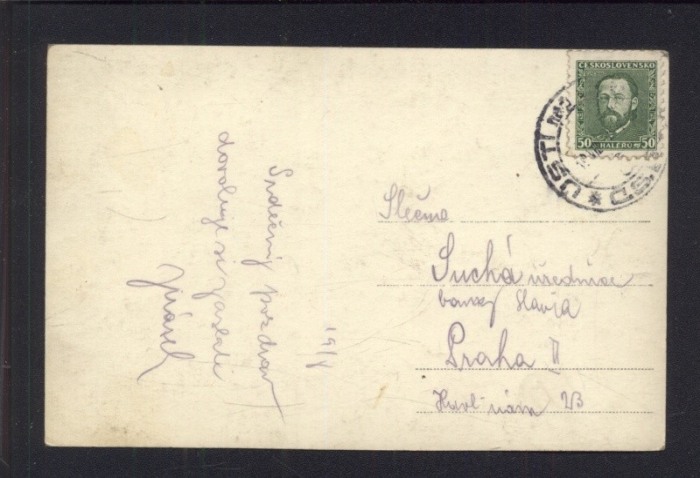 ČESKOSLOVENSKO
50 HALÉŘŮ 50
ÚSTÍ
19/8
Srdečný pozdrav
dovoluje si zaslati
Jirásek
Slečna
Suchá úřednice
banky Slavja
Praha II
Havl. nám 23